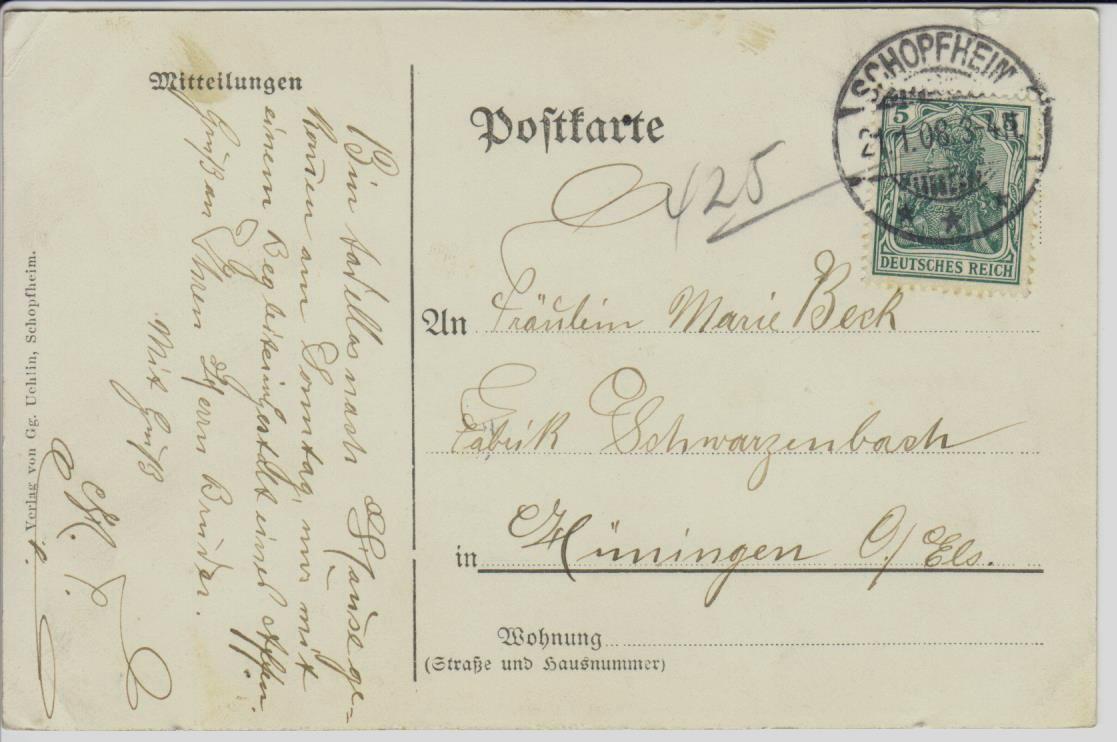 Mitteilungen
Bin tadellos nach Hause ge-
komen am Sonntag, nur mit
einem Begleiter
Gruß an Ihren Herrn Bruder.
Mit Gruß
Verlag von Gg. Uehlin, Schopfheim.
Postkarte
425
SCHOPFHEIM
21.1.08. 3-4 N.
5 5
DEUTSCHES REICH
An Fräulein Marie Beck
Fabrik Schwarzenbach
in Hüningen O/Els.
Wohnung
(Straße und Hausnummer)